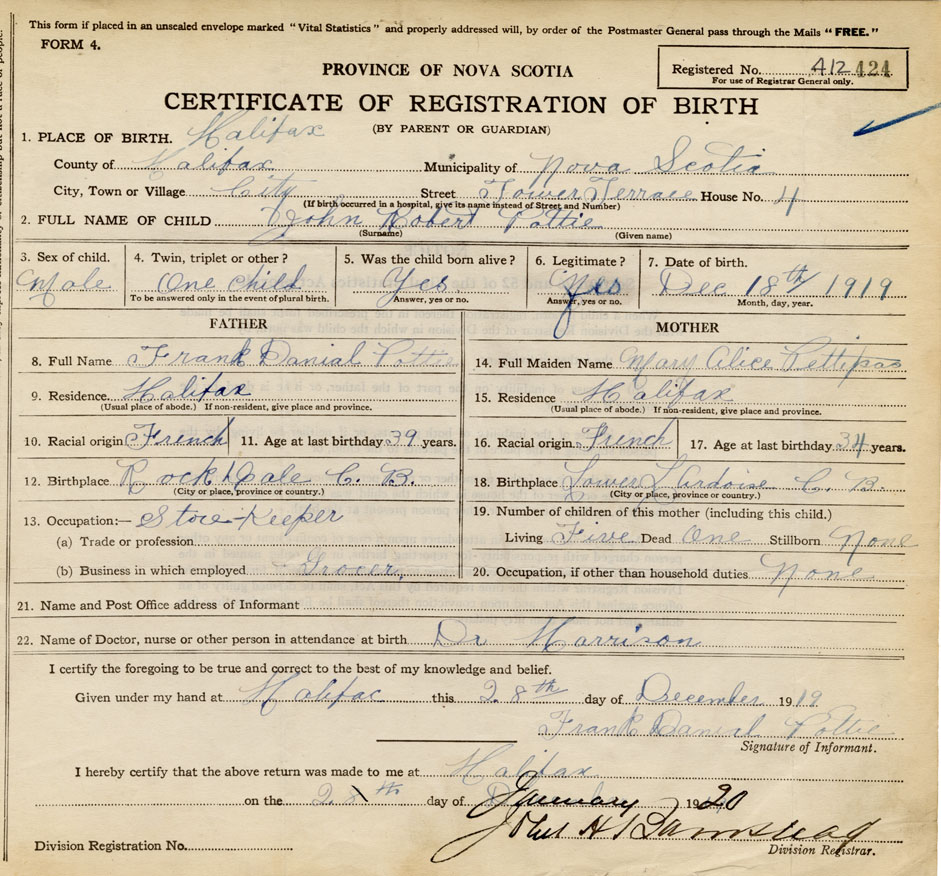 This form if placed in an unsealed envelope marked "Vital Statistics" and properly addressed will, by order of the Postmaster General pass through the Mails "FREE."
FORM 4.
PROVINCE OF NOVA SCOTIA
Registered No. 412 424
For use of Registrar General only.
CERTIFICATE OF REGISTRATION OF BIRTH
(BY PARENT OR GUARDIAN)
1. PLACE OF BIRTH. Halifax
County of Halifax Municipality of Nova Scotia
City, Town or Village City Street Tower Terrace House No. 4
(If birth occurred in a hospital, give its name instead of Street and Number)
2. FULL NAME OF CHILD John Robert Pottie
(Surname) (Given name)
3. Sex of child. 4. Twin, triplet or other? 5. Was the child born alive? 6. Legitimate? 7. Date of birth.
Male One child Yes Yes Dec 18th 1919
To be answered only in the event of plural birth. Answer, yes or no. Answer, yes or no. Month, day, year.
FATHER MOTHER
8. Full Name Frank Danial Pottie 14. Full Maiden Name Mary Alice Pettipas
9. Residence. Halifax 15. Residence Halifax
(Usual place of abode.) If non-resident, give place and province. (Usual place of abode.) If non-resident, give place and province.
10. Racial origin French 11. Age at last birthday 39 years. 16. Racial origin. French 17. Age at last birthday 34 years.
12. Birthplace Rock Dale C. B. 18. Birthplace Lower L'Ardoise C. B.
(City or place, province or country.) (City or place, province or country.)
13. Occupation:— Store Keeper 19. Number of children of this mother (including this child.)
(a) Trade or profession Living Five Dead One Stillborn None
(b) Business in which employed Grocer 20. Occupation, if other than household duties None
21. Name and Post Office address of Informant
22. Name of Doctor, nurse or other person in attendance at birth Dr Harrison
I certify the foregoing to be true and correct to the best of my knowledge and belief.
Given under my hand at Halifax this 28th day of December 1919
Frank Danial Pottie
Signature of Informant.
I hereby certify that the above return was made to me at Halifax
on the 28th day of January 1920
Division Registration No. Division Registrar.